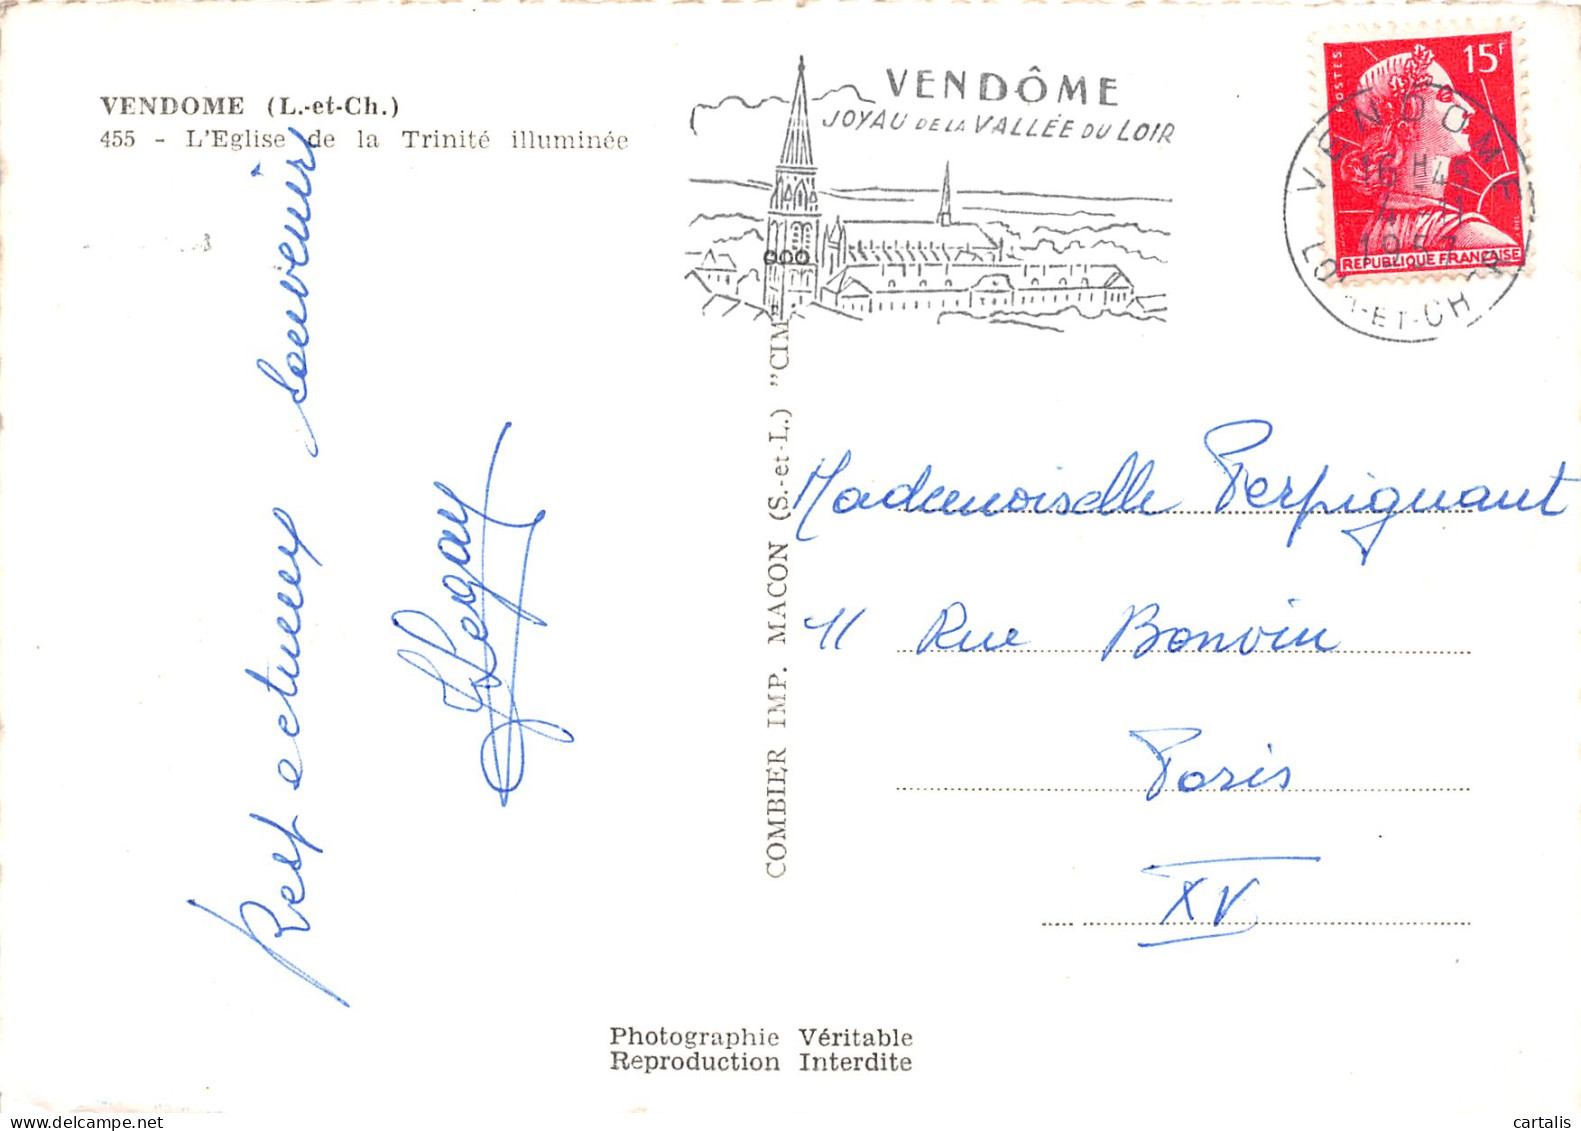 VENDOME (L.-et-Ch.)
455 - L'Eglise de la Trinité illuminée
VENDÔME
JOYAU DE LA VALLÉE DU LOIR
POSTES
15F
REPUBLIQUE FRANÇAISE
VENDOME
16H45
4-11
1957
LOIR-ET-CHER
Respectueux souvenir
COMBIER IMP. MACON (S.-et-L.) "CIM"
Mademoiselle Perpignant
11 Rue Bonvin
Paris
XV
Photographie Véritable
Reproduction Interdite
cartalis
delcampe.net